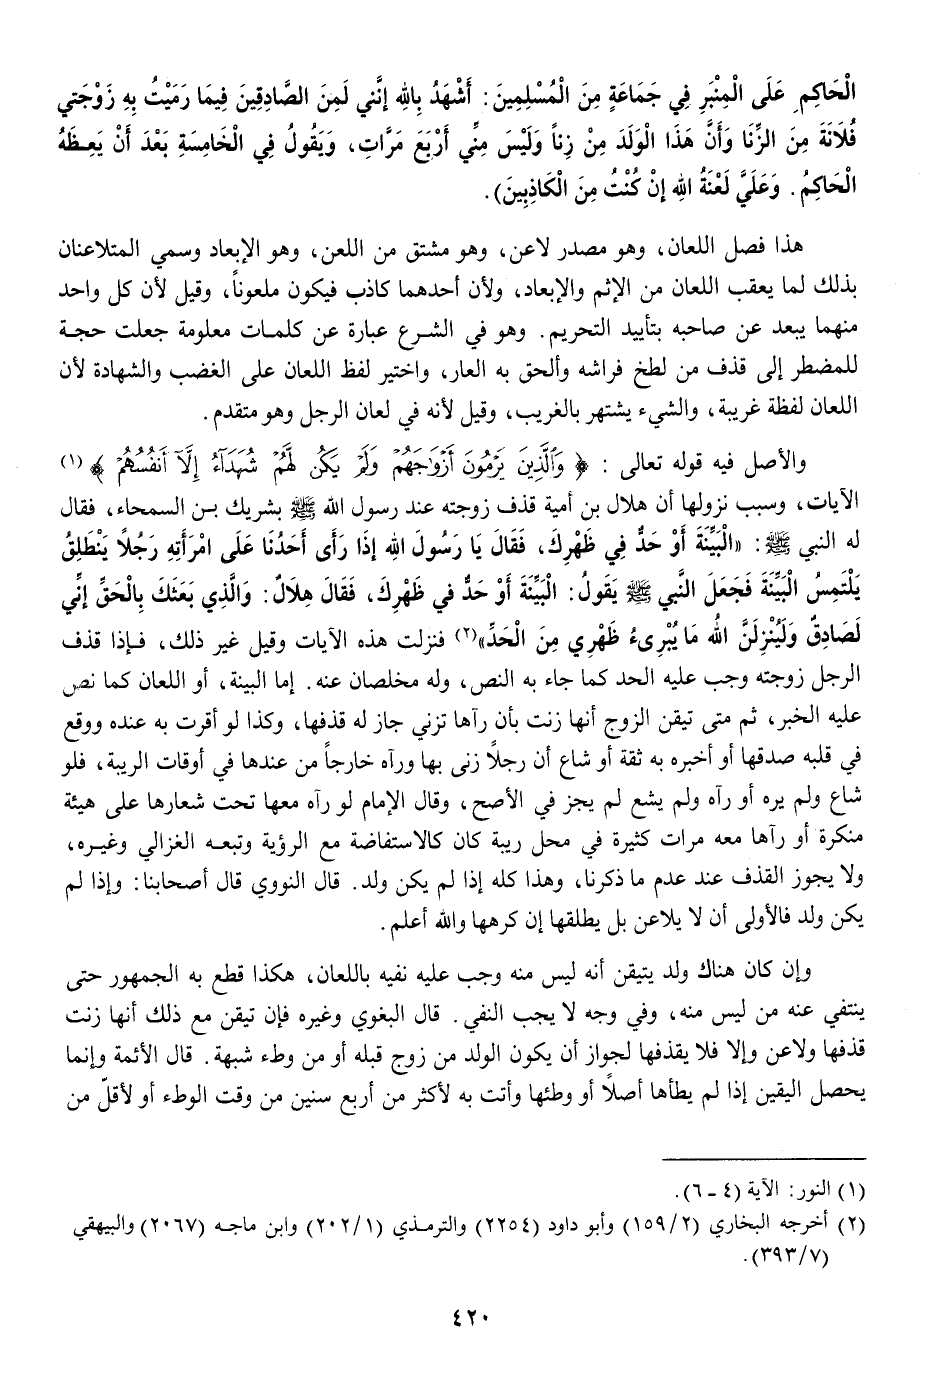 الْحَاكِمِ عَلَى الْمِنْبَرِ فِي جَمَاعَةٍ مِنَ الْمُسْلِمِينَ: أَشْهَدُ بِاللهِ إِنَّنِي لَمِنَ الصَّادِقِينَ فِيمَا رَمَيْتُ بِهِ زَوْجَتِي
فُلَانَةَ مِنَ الزِّنَا وَأَنَّ هَذَا الْوَلَدَ مِنْ زِناً وَلَيْسَ مِنِّي أَرْبَعَ مَرَّاتٍ، وَيَقُولُ فِي الْخَامِسَةِ بَعْدَ أَنْ يَعِظَهُ
الْحَاكِمُ. وَعَلَيَّ لَعْنَةُ اللهِ إِنْ كُنْتُ مِنَ الْكَاذِبِينَ).
هذا فصل اللعان، وهو مصدر لاعن، وهو مشتق من اللعن، وهو الإبعاد وسمي المتلاعنان
بذلك لما يعقب اللعان من الإثم والإبعاد، ولأن أحدهما كاذب فيكون ملعوناً، وقيل لأن كل واحد
منهما يبعد عن صاحبه بتأييد التحريم. وهو في الشرع عبارة عن كلمات معلومة جعلت حجة
للمضطر إلى قذف من لطخ فراشه وألحق به العار، واختير لفظ اللعان على الغضب والشهادة لأن
اللعان لفظة غريبة، والشيء يشتهر بالغريب، وقيل لأنه في لعان الرجل وهو متقدم.
والأصل فيه قوله تعالى: ﴿وَٱلَّذِينَ يَرْمُونَ أَزْوَٰجَهُمْ وَلَمْ يَكُن لَّهُمْ شُهَدَآءُ إِلَّآ أَنفُسُهُمْ﴾(١)
الآيات، وسبب نزولها أن هلال بن أمية قذف زوجته عند رسول الله ﷺ بشريك بـن السمحاء، فقال
له النبي ﷺ: «الْبَيِّنَةَ أَوْ حَدٌّ فِي ظَهْرِكَ، فَقَالَ يَا رَسُولَ اللهِ إِذَا رَأَى أَحَدُنَا عَلَى امْرَأَتِهِ رَجُلاً يَنْطَلِقُ
يَلْتَمِسُ الْبَيِّنَةَ فَجَعَلَ النَّبِي ﷺ يَقُولُ: الْبَيِّنَةَ أَوْ حَدٌّ في ظَهْرِكَ، فَقَالَ هِلَالٌ: وَالَّذِي بَعَثَكَ بِالْحَقِّ إِنِّي
لَصَادِقٌ وَلَيُنْزِلَنَّ اللهُ مَا يُبْرِىءُ ظَهْرِي مِنَ الْحَدِّ»(٢) فنزلت هذه الآيات وقيل غير ذلك، فـإذا قذف
الرجل زوجته وجب عليه الحد كما جاء به النص، وله مخلصان عنه. إما البينة، أو اللعان كما نص
عليه الخبر، ثم متى تيقن الزوج أنها زنت بأن رآها تزني جاز له قذفها، وكذا لو أقرت به عنده ووقع
في قلبه صدقها أو أخبره به ثقة أو شاع أن رجلاً زنى بها ورآه خارجاً من عندها في أوقات الريبة، فلو
شاع ولم يره أو رآه ولم يشع لم يجز في الأصح، وقال الإمام لو رآه معها تحت شعارها على هيئة
منكرة أو رآها معه مرات كثيرة في محل ريبة كان كالاستفاضة مع الرؤية وتبعـه الغزالي وغيـره،
ولا يجوز القذف عند عدم ما ذكرنا، وهذا كله إذا لم يكن ولد. قال النووي قال أصحابنا: وإذا لم
يكن ولد فالأولى أن لا يلاعن بل يطلقها إن كرهها والله أعلم.
وإن كان هناك ولد يتيقن أنه ليس منه وجب عليه نفيه باللعان، هكذا قطع به الجمهور حتى
ينتفي عنه من ليس منه، وفي وجه لا يجب النفي. قال البغوي وغيره فإن تيقن مع ذلك أنها زنت
قذفها ولاعن وإلا فلا يقذفها لجواز أن يكون الولد من زوج قبله أو من وطء شبهة. قال الأئمة وإنما
يحصل اليقين إذا لم يطأها أصلاً أو وطئها وأتت به لأكثر من أربع سنين من وقت الوطء أو لأقلّ من
(١) النور: الآية (٤ ـ ٦).
(٢) أخرجه البخاري (١٥٩/٢) وأبو داود (٢٢٥٤) والترمذي (٢٠٢/١) وابن ماجه (٢٠٦٧) والبيهقي
(٣٩٣/٧).
٤٢٠